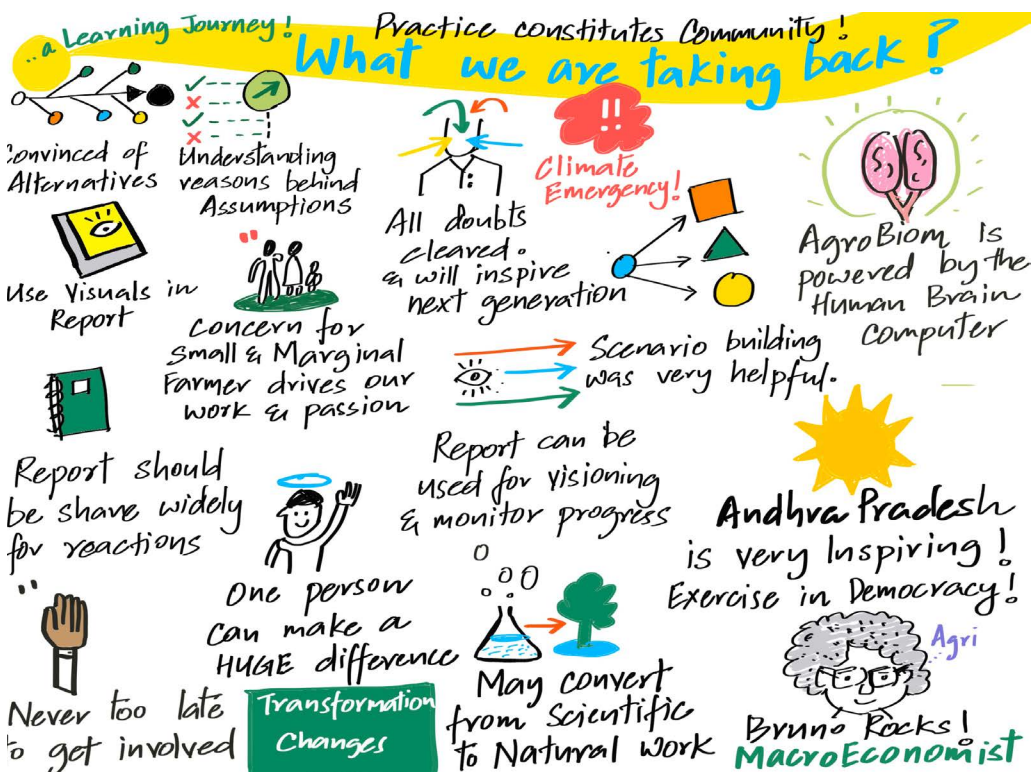 ...a Learning Journey!
Practice constitutes Community!
What we are taking back?
Convinced of
Alternatives
Understanding
reasons behind
Assumptions
All doubts
cleared.
& will inspire
next generation
!!
Climate
Emergency!
AgroBiom is
powered by the
Human Brain
Computer
Use Visuals in
Report
Concern for
Small & Marginal
Farmer drives our
work & passion
Scenario building
was very helpful.
Report should
be share widely
for reactions
One person
can make a
HUGE difference
Report can be
used for visioning
& monitor progress
Andhra Pradesh
is very Inspiring!
Exercise in Democracy!
Never too late
to get involved
Transformation
Changes
May convert
from Scientific
to Natural work
Agri
Bruno Rocks!
MacroEconomist